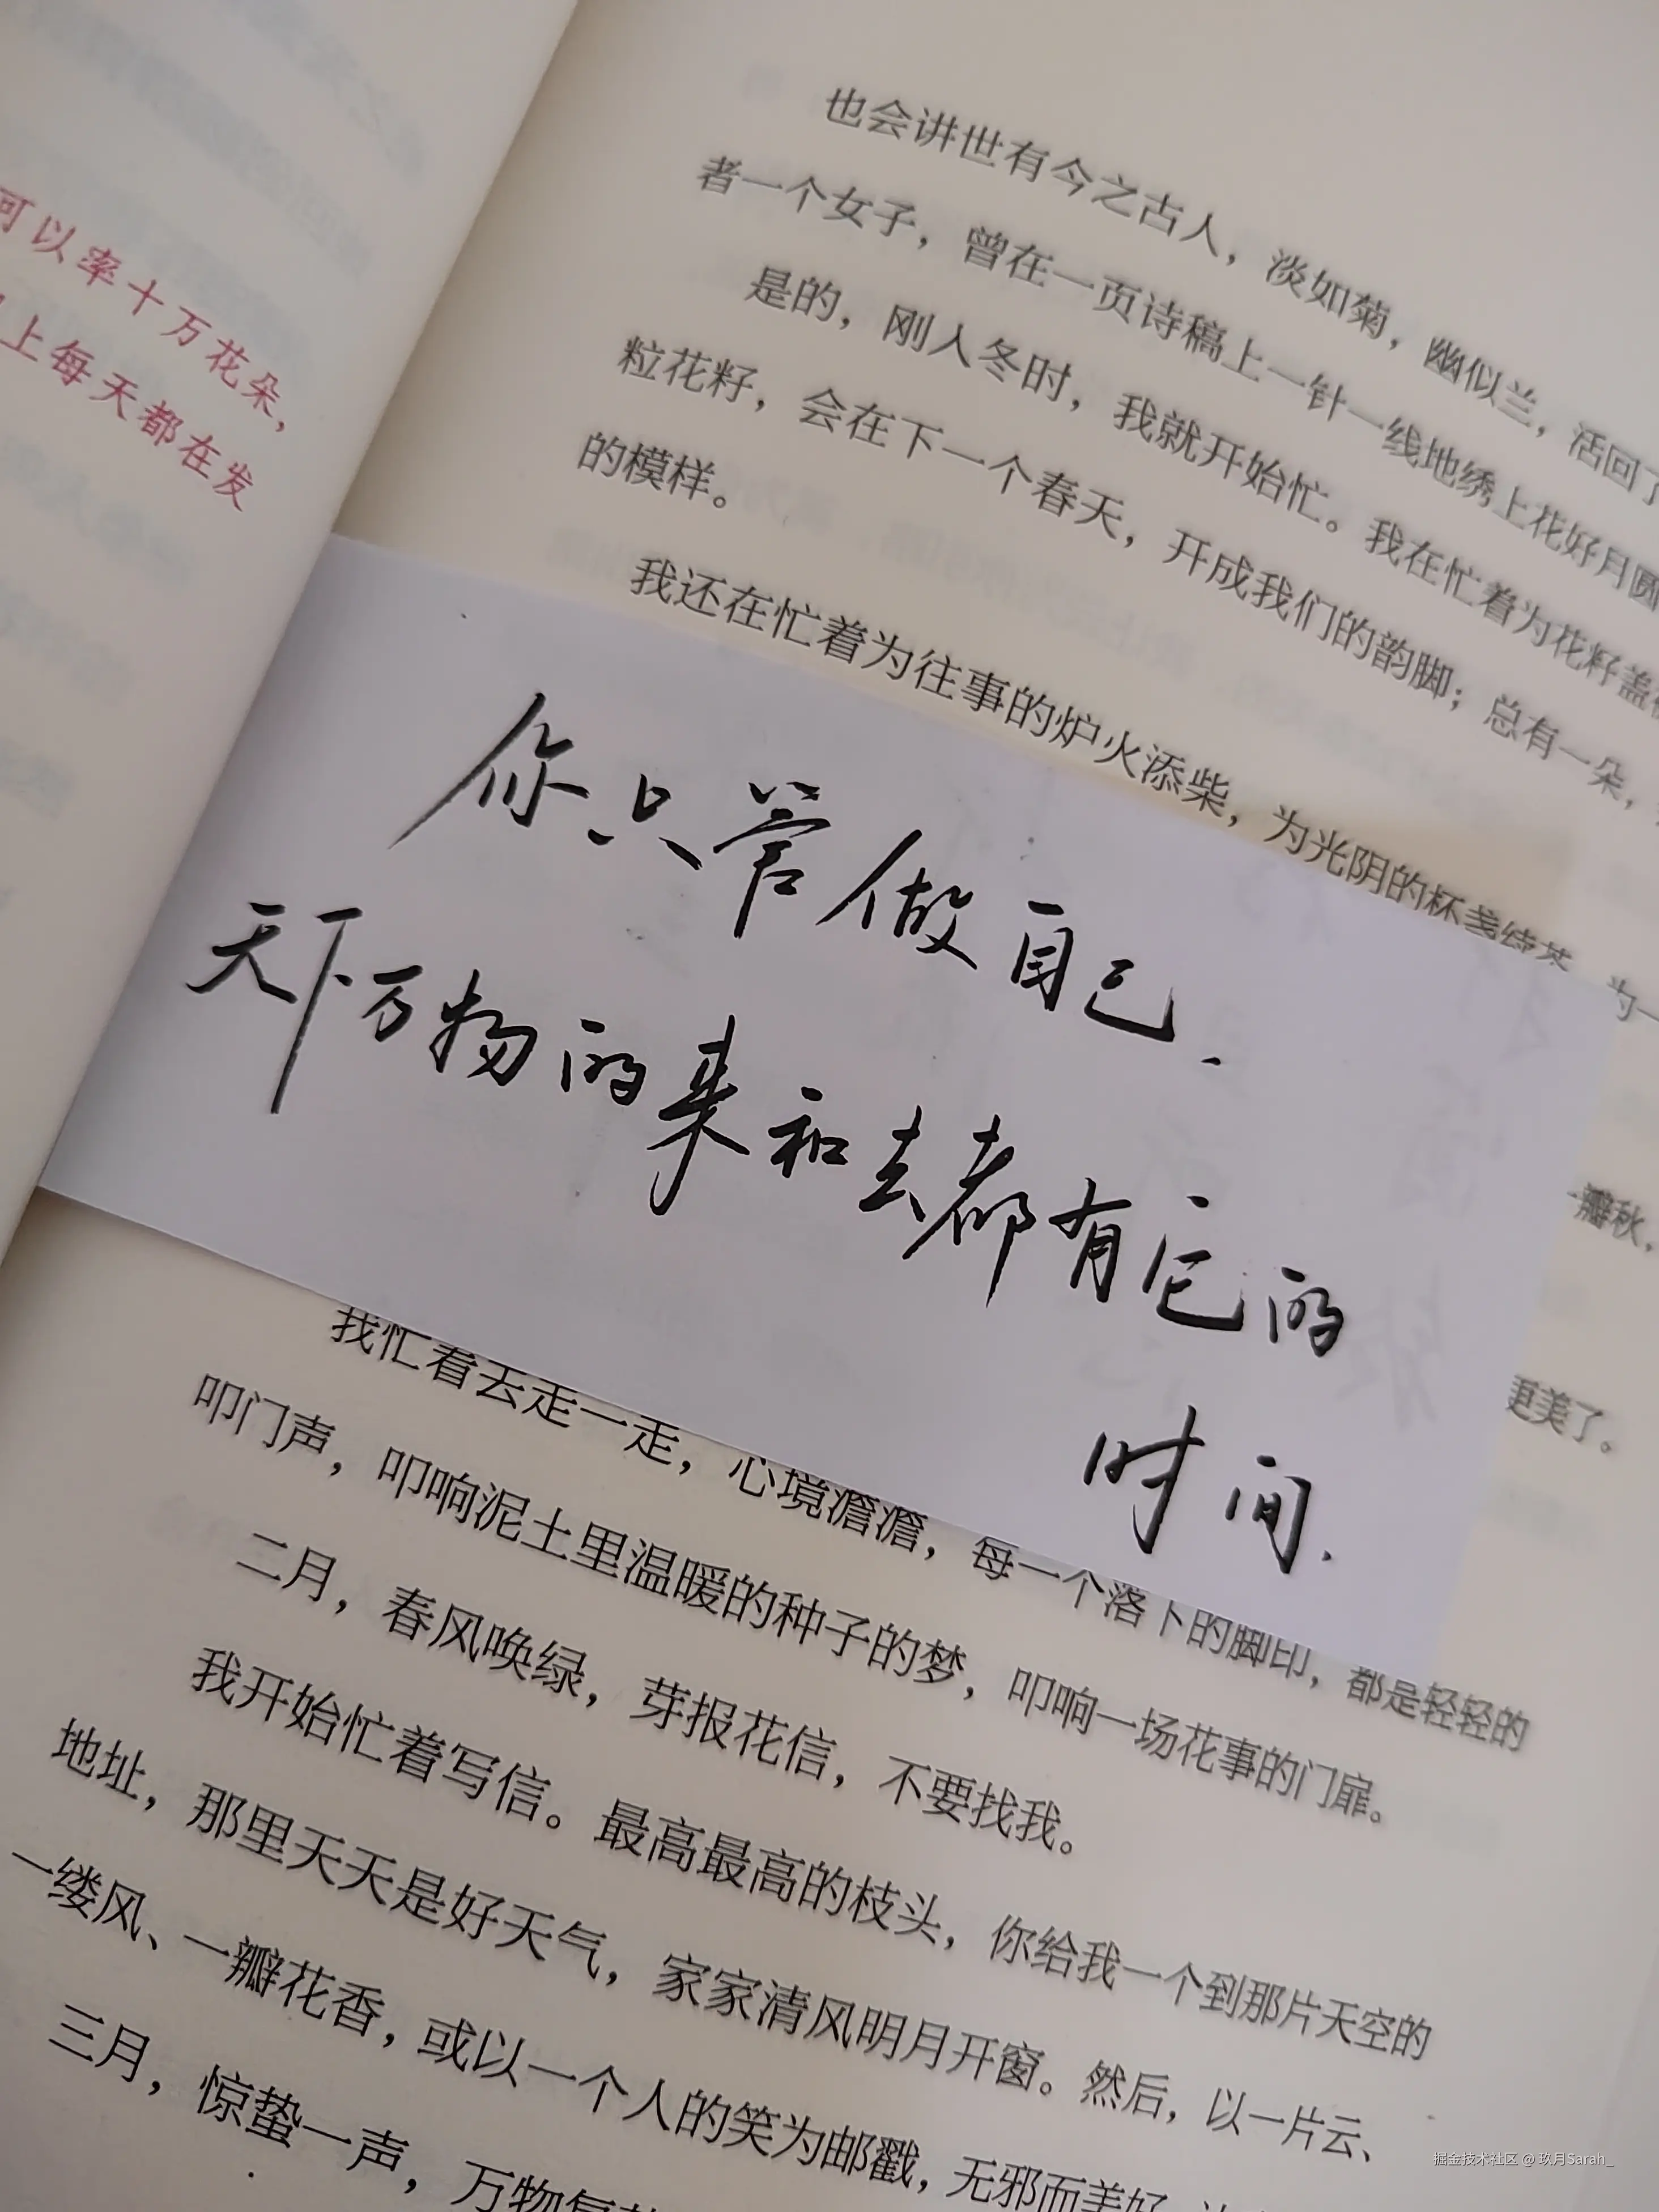 可以率十万花朵，
上每天都在发
也会讲世有今之古人，淡如菊，幽似兰，活回了
者一个女子，曾在一页诗稿上一针一线地绣上花好月圆
是的，刚入冬时，我就开始忙。我在忙着为花籽盖
粒花籽，会在下一个春天，开成我们的韵脚；总有一朵，
的模样。
我还在忙着为往事的炉火添柴，为光阴的杯盏续茶，为一
你只管做自己.
天下万物的来和去都有它的
时间.
一瓣秋，
更美了。
我忙着去走一走，心境澹澹，每一个落下的脚印，都是轻轻的
叩门声，叩响泥土里温暖的种子的梦，叩响一场花事的门扉。
二月，春风唤绿，芽报花信，不要找我。
我开始忙着写信。最高最高的枝头，你给我一个到那片天空的
地址，那里天天是好天气，家家清风明月开窗。然后，以一片云、
一缕风、一瓣花香，或以一个人的笑为邮戳，无邪而美好
三月，惊蛰一声，万物复
掘金技术社区 @ 玖月Sarah_